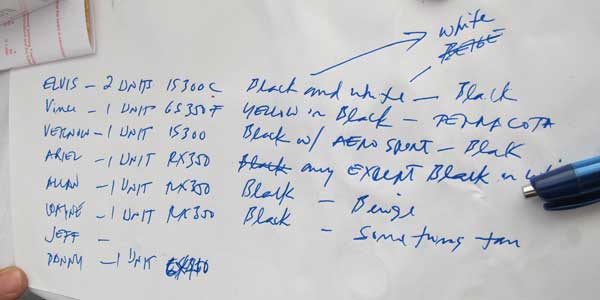 white
ELVIS - 2 UNITS IS300C Black and white - Black
Vince - 1 UNIT GS350F YELLOW in Black - TERRACOTA
VERNON - 1 UNIT IS300 Black w/ AEROSPORT - Black
ARIEL - 1 UNIT RX350 Black any EXCEPT Black n
ALLAN - 1 UNIT RX350 Black - Beige
WAYNE - 1 UNIT RX350 Black - Something tan
JEFF -
DANNY - 1 UNIT